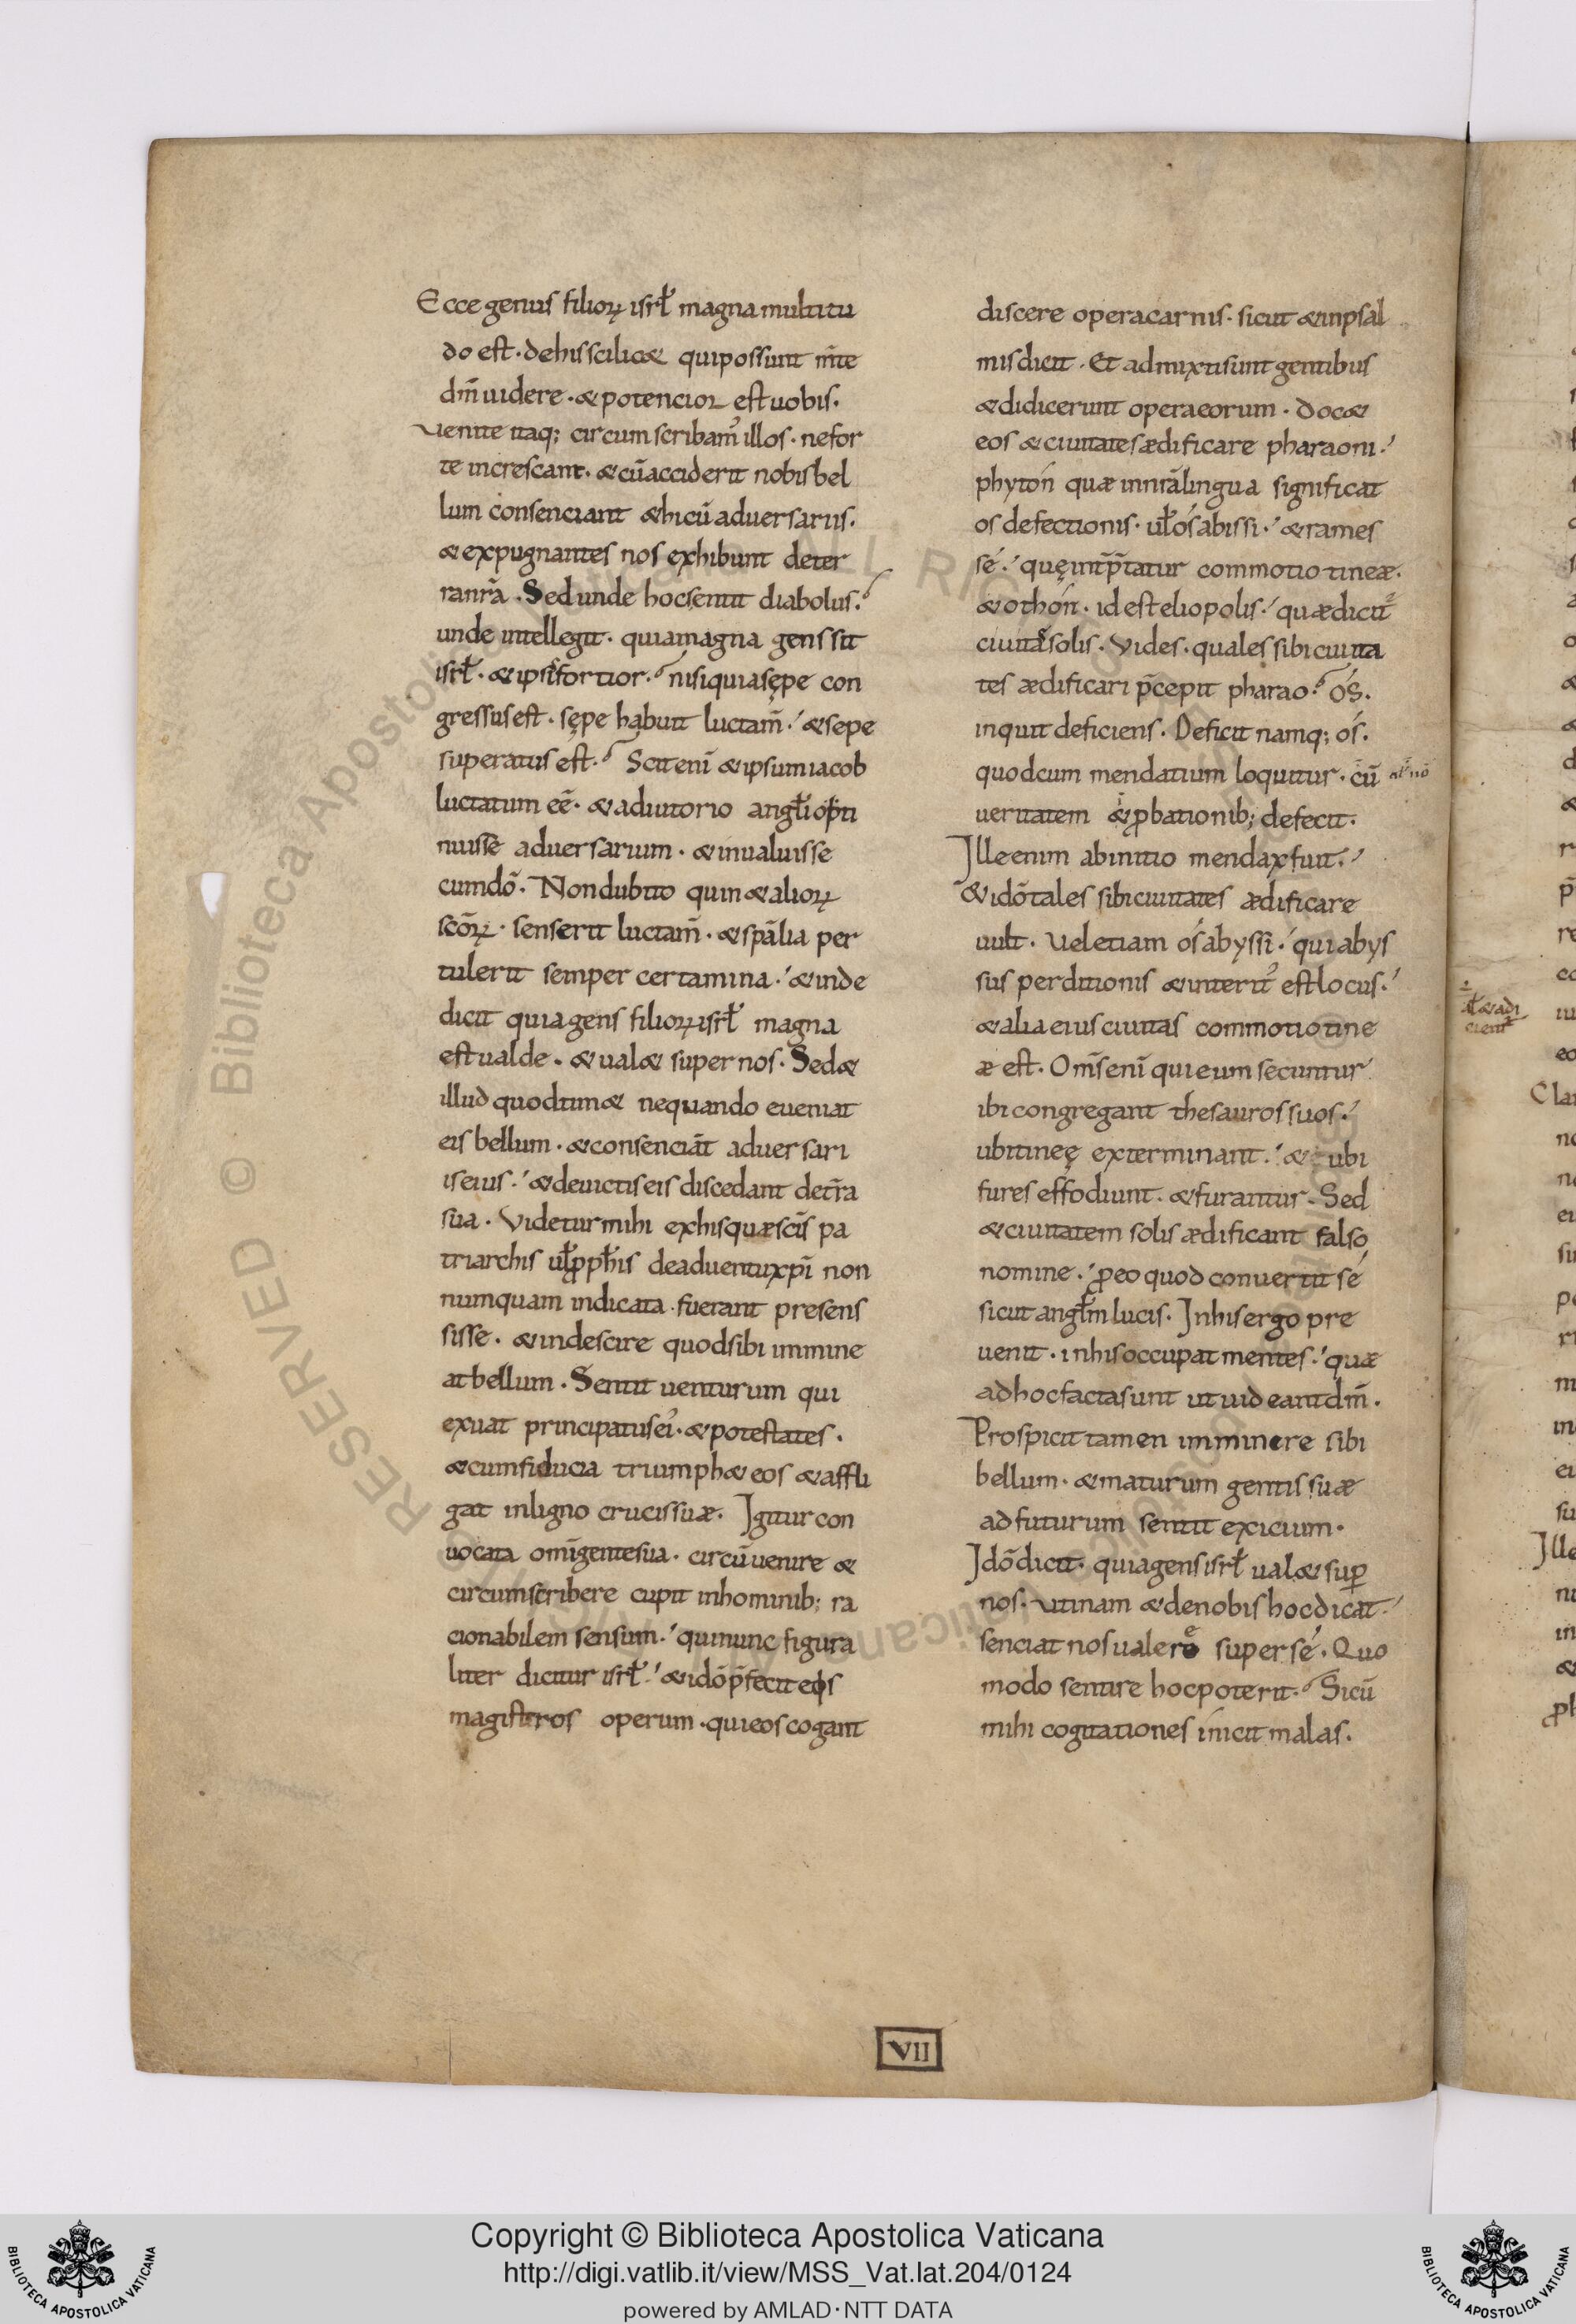 Ecce genus filioꝝ isrł magna multitu
do est · de his scilicet qui possunt m̄te
dm̄ uidere · & potencior est uobis ·
Uenite itaq; circumscribam᾽ illos · ne for
te increscant · & cū acciderit nobis bel
lum consenciant & hi cū aduersariis ·
& expugnantes nos exhibunt de ter
ra nr̄a · Sed unde hoc sentit diabolus ·
unde intellegit · quia magna gens sit
isrł · & ipsi fortior · nisi quia sępe con
gressus est · sępe habuit luctam̄ · & sepe
superatus est · Scit enī & ipsum iacob
luctatum eē · & adiutorio angłi opti
nuisse aduersarium · & inualuisse
cum dō · Non dubito quin & alioꝝ
scōꝝ · senserit luctam̄ · & spālia per
tulerit semper certamina · & inde
dicit quia gens filioꝝ isrł magna
est ualde · & ual& super nos · Sed &
illud quod tim& nequando eueniat
eis bellum · & consenciāt aduersari
is eius · & deuictis eis discedant de tr̄a
sua · Videtur mihi ex his quæ scīs pa
triarchis uł ꝓpħis de aduentu xpī non
numquam indicata fuerant presens
sisse · & inde scire quod sibi immine
at bellum · Sentit uenturum qui
exuat principatus ei᾽ · & potestates ·
& cum fiducia triumph& eos & affli
gat in ligno crucis suæ · Igitur con
uocata omī gente sua · circūuenire &
circumscribere cupit in hominib; ra
cionabilem sensum · qui nunc figura
liter dicitur isrł · & idō p̄fecit eos
magistros operum · qui eos cogant
discere opera carnis · sicut & in psal
mis dicit · Et admixti sunt gentibus
& didicerunt opera eorum · doc&
eos & ciuitates ædificare pharaoni ·
phytón quæ in nr̄a lingua significat
os defectionis · uł ós abissi · & rames
sé · quę intp̄tatur commotio tineæ ·
& othón · id est eliopolis · quæ dicit᾽
ciuitas solis · Vides · quales sibi ciuita
tes ædificari p̄cepit pharao · Ós ·
inquit deficiens · Deficit namq; ós ·
quod cum mendatium loquitur · cū
ueritatem & ꝓbationib; defecit ·
Ille enim ab initio mendax fuit ·
& idō tales sibi ciuitates ædificare
uult · Uel etiam ós abyssi · qui abys
sus perditionis & interit᾽ est locus ·
& alia eius ciuitas commotio tine
æ est · Om̄s enī qui eum secuntur
ibi congregant thesauros suos ·
ubi tineę exterminant · & ubi
fures effodiunt · & furantur · Sed
& ciuitatem solis ædificant falso
nomine · ꝓ eo quod conuertit sé
sicut angłm lucis · In his ergo pre
uenit · in his occupat mentes · quæ
ad hoc factæ sunt ut uideant dm̄ ·
Prospicit tamen imminere sibi
bellum · & maturum gentis suæ
adfuturum sentit exicium ·
Idō dicit · quia gens isrł ual& suꝑ
nos · Utinam & de nobis hoc dicat
senciat nos ualere super sé · Quo
modo sentire hoc poterit · Si cū
mihi cogitationes ínicit malas ·
VII
Copyright © Biblioteca Apostolica Vaticana
http://digi.vatlib.it/view/MSS_Vat.lat.204/0124
powered by AMLAD·NTT DATA